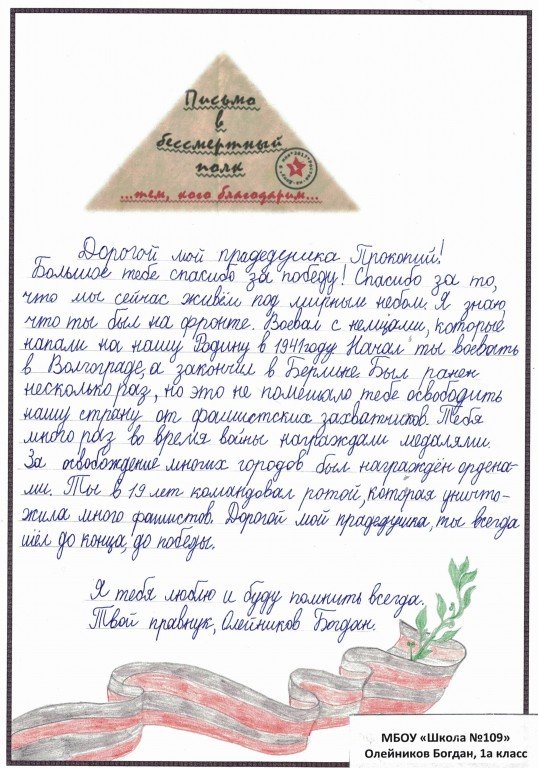 Письмо
в
бессмертный
полк
...тем, кого благодарим...
Дорогой мой прадедушка Прокопий!
Большое тебе спасибо за победу! Спасибо за то,
что мы сейчас живём под мирным небом. Я знаю,
что ты был на фронте. Воевал с немцами, которые
напали на нашу Родину в 1941 году. Начал ты воевать
в Волгограде, а закончил в Берлине. Был ранен
несколько раз, но это не помешало тебе освободить
нашу страну от фашистских захватчиков. Тебя
много раз во время войны награждали медалями.
За освобождение многих городов был награждён ордена-
ми. Ты в 19 лет командовал ротой, которая уничто-
жила много фашистов. Дорогой мой прадедушка, ты всегда
шёл до конца, до победы.
Я тебя люблю и буду помнить всегда.
Твой правнук, Олейников Богдан.
МБОУ «Школа №109»
Олейников Богдан, 1а класс